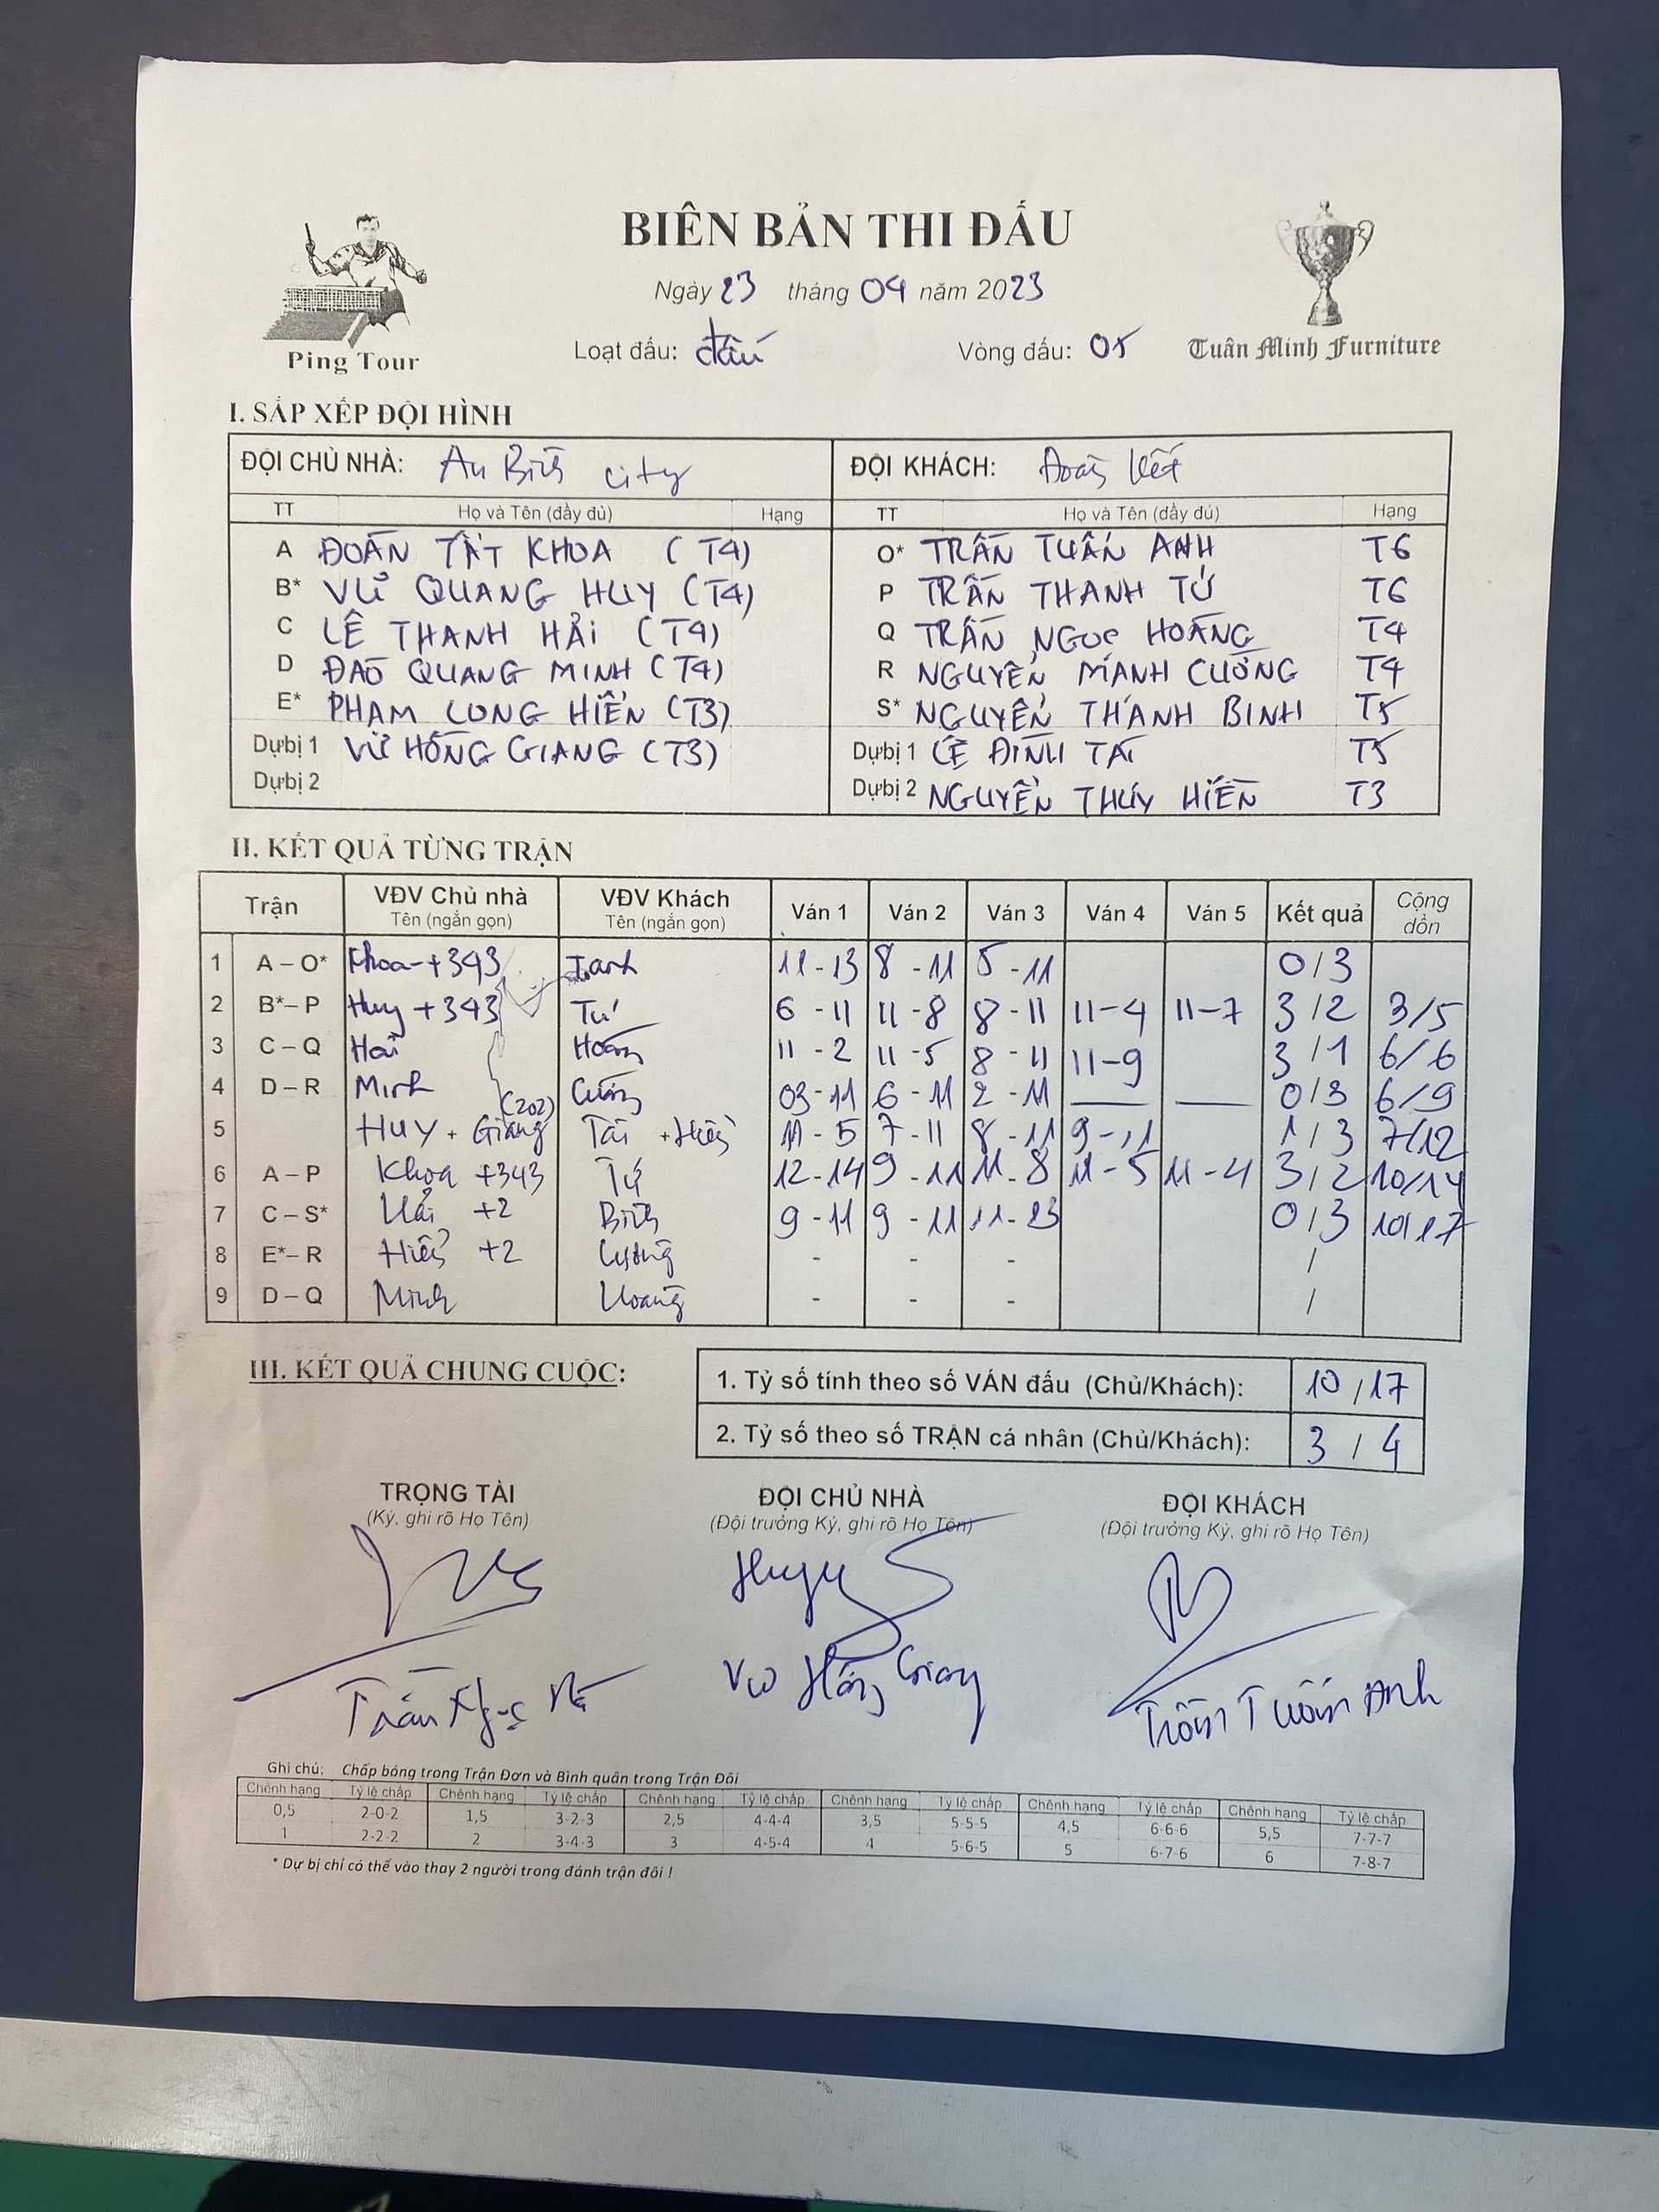 BIÊN BẢN THI ĐẤU
Ngày 23 tháng 04 năm 2023
Ping Tour
Loạt đấu: đấu Vòng đấu: 05
Tuân Minh Furniture
I. SẮP XẾP ĐỘI HÌNH
ĐỘI CHỦ NHÀ: An Bình city ĐỘI KHÁCH: Đoàn Kết
TT Họ và Tên (đầy đủ) Hạng TT Họ và Tên (đầy đủ) Hạng
A ĐOÀN TẤT KHOA (T4) O* TRẦN TUẤN ANH T6
B* VŨ QUANG HUY (T4) P TRẦN THANH TÚ T6
C LÊ THANH HẢI (T4) Q TRẦN NGỌC HOÀNG T4
D ĐÀO QUANG MINH (T4) R NGUYỄN MẠNH CƯỜNG T4
E* PHẠM LONG HIỂN (T3) S* NGUYỄN THANH BÌNH T5
Dự bị 1 VŨ HỒNG GIANG (T3) Dự bị 1 LÊ ĐÌNH TÀI T5
Dự bị 2 Dự bị 2 NGUYỄN THÚY HIỀN T3
II. KẾT QUẢ TỪNG TRẬN
Trận VĐV Chủ nhà VĐV Khách Ván 1 Ván 2 Ván 3 Ván 4 Ván 5 Kết quả Cộng dồn
Tên (ngắn gọn) Tên (ngắn gọn)
1 A – O* Khoa +343 T.anh 11-13 8-11 5-11 0/3
2 B* – P Huy +343 Tú 6-11 11-8 8-11 11-4 11-7 3/2 3/5
3 C – Q Hải Hoàng 11-2 11-5 8-11 11-9 3/1 6/6
4 D – R Minh Cường 03-11 6-11 2-11 — — 0/3 6/9
5 Huy + Giang (202) Tài + Hiền 11-5 7-11 8-11 9-11 1/3 7/12
6 A – P Khoa +343 Tú 12-14 9-11 11-8 11-5 11-4 3/2 10/14
7 C – S* Hải +2 Bình 9-11 9-11 11-13 0/3 10/17
8 E* – R Hiển +2 Cường - - - /
9 D – Q Minh Hoàng - - - /
III. KẾT QUẢ CHUNG CUỘC:
1. Tỷ số tính theo số VÁN đấu (Chủ/Khách): 10/17
2. Tỷ số theo số TRẬN cá nhân (Chủ/Khách): 3/4
TRỌNG TÀI ĐỘI CHỦ NHÀ ĐỘI KHÁCH
(Ký, ghi rõ Họ Tên) (Đội trưởng Ký, ghi rõ Họ Tên) (Đội trưởng Ký, ghi rõ Họ Tên)
Trần Ngọc Vũ Hồng Giang Trần Tuấn Anh
Ghi chú: Chấp bóng trong Trận Đơn và Bình quân trong Trận Đôi
Chênh hạng Tỷ lệ chấp Chênh hạng Tỷ lệ chấp Chênh hạng Tỷ lệ chấp Chênh hạng Tỷ lệ chấp Chênh hạng Tỷ lệ chấp Chênh hạng Tỷ lệ chấp
0,5 2-0-2 1,5 3-2-3 2,5 4-4-4 3,5 5-5-5 4,5 6-6-6 5,5 7-7-7
1 2-2-2 2 3-4-3 3 4-5-4 4 5-6-5 5 6-7-6 6 7-8-7
* Dự bị chỉ có thể vào thay 2 người trong đánh trận đôi !